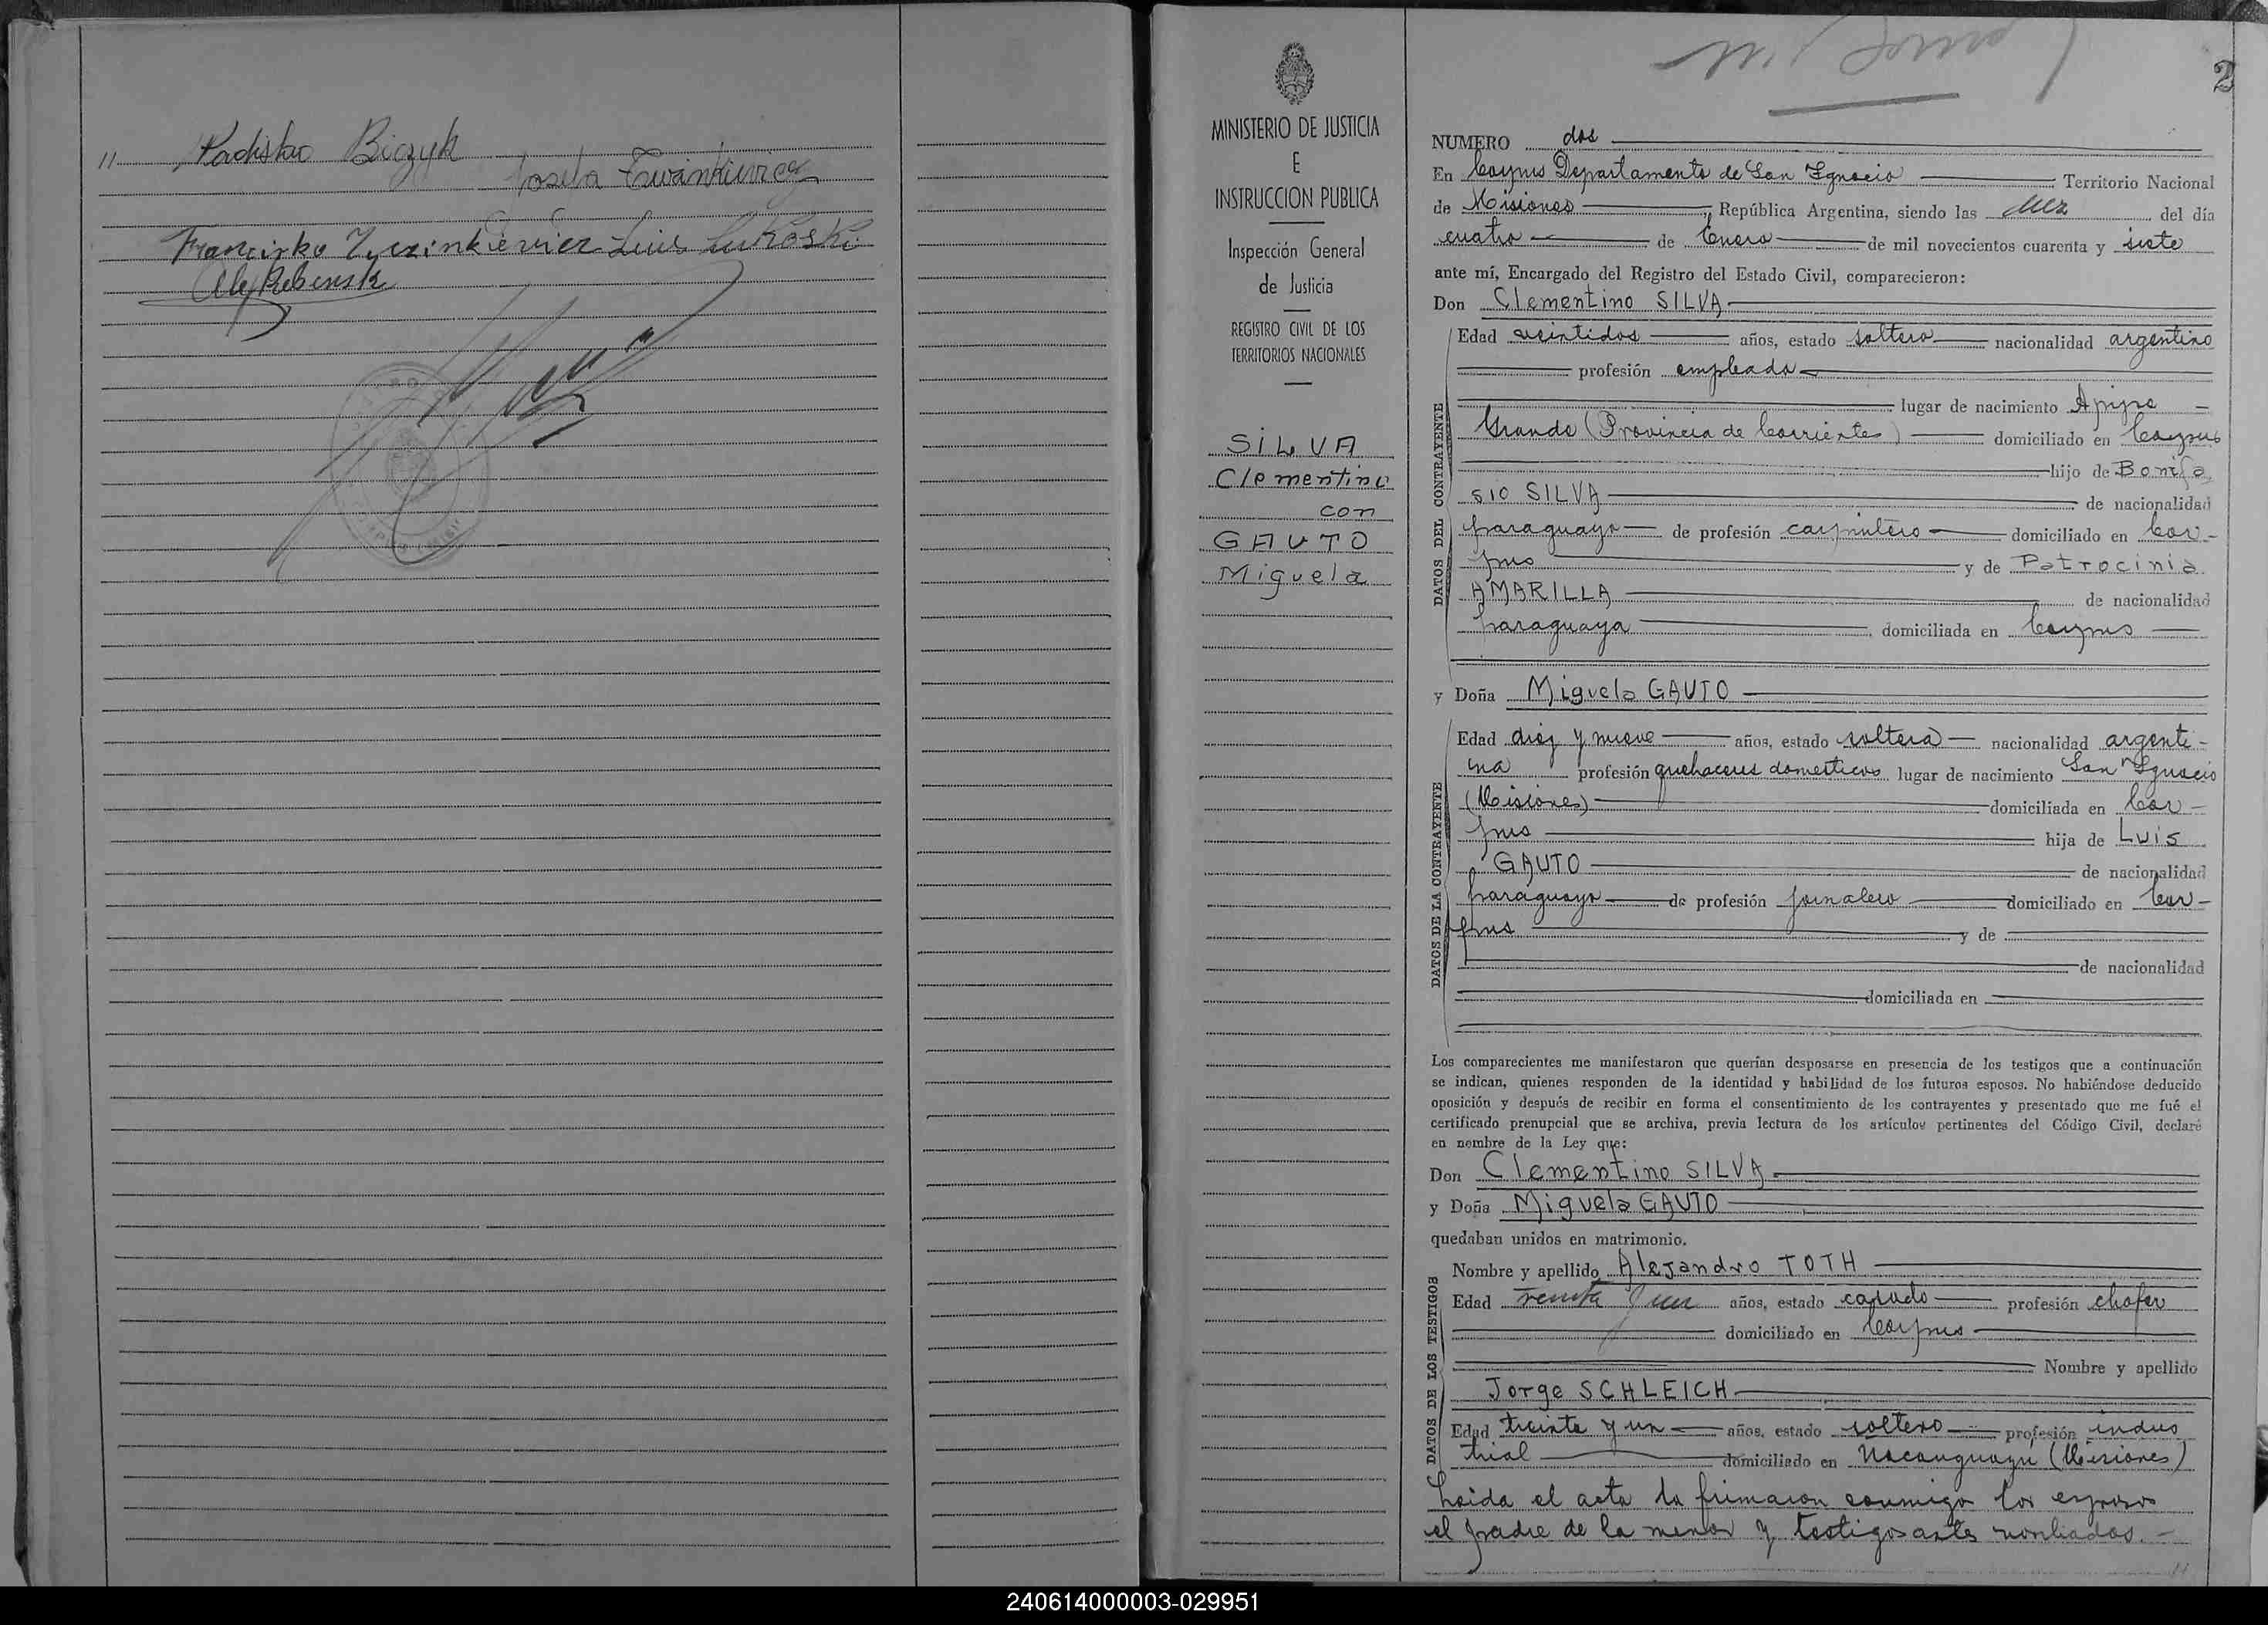 Ladislao Biczyk
Francisko Zyczinkievicz Luis Lukoski
Alej Rebensk
MINISTERIO DE JUSTICIA
E
INSTRUCCION PUBLICA
Inspección General
de Justicia
REGISTRO CIVIL DE LOS
TERRITORIOS NACIONALES
SILVA
Clementino
con
GAUTO
Miguela
2
NUMERO dos
En Corpus Departamento de San Ignacio Territorio Nacional
de Misiones, República Argentina, siendo las diez del día
cuatro de Enero de mil novecientos cuarenta y siete
ante mí, Encargado del Registro del Estado Civil, comparecieron:
Don Clementino SILVA
DATOS DEL CONTRAYENTE
Edad veintidos años, estado soltero nacionalidad argentino
profesión empleado
lugar de nacimiento Apipe
Grande (Provincia de Corrientes) domiciliado en Corpus
hijo de Bonifa
sio SILVA de nacionalidad
paraguayo de profesión carpintero domiciliado en Cor-
pus y de Patrocinia
AMARILLA de nacionalidad
paraguaya domiciliada en Corpus
y Doña Miguela GAUTO
DATOS DE LA CONTRAYENTE
Edad diez y nueve años, estado soltera nacionalidad argenti-
na profesión quehaceres domesticos lugar de nacimiento San Ignacio
(Misiones) domiciliada en Cor-
pus hija de Luis
GAUTO de nacionalidad
paraguayo de profesión jornalero domiciliado en Cor-
pus y de
de nacionalidad
domiciliada en
Los comparecientes me manifestaron que querían desposarse en presencia de los testigos que a continuación
se indican, quienes responden de la identidad y habilidad de los futuros esposos. No habiéndose deducido
oposición y después de recibir en forma el consentimiento de los contrayentes y presentado que me fué el
certificado prenupcial que se archiva, previa lectura de los artículos pertinentes del Código Civil, declaré
en nombre de la Ley que:
Don Clementino SILVA
y Doña Miguela GAUTO
quedaban unidos en matrimonio.
DATOS DE LOS TESTIGOS
Nombre y apellido Alejandro TOTH
Edad treinta y un años, estado casado profesión chofer
domiciliado en Corpus
Nombre y apellido
Jorge SCHLEICH
Edad treinta y un años, estado soltero profesión indus
trial domiciliado en Ñacanguazú (Misiones)
Leida el acta la firmaron conmigo los esposos
el padre de la menor y testigos antes nombrados.-
240614000003-029951